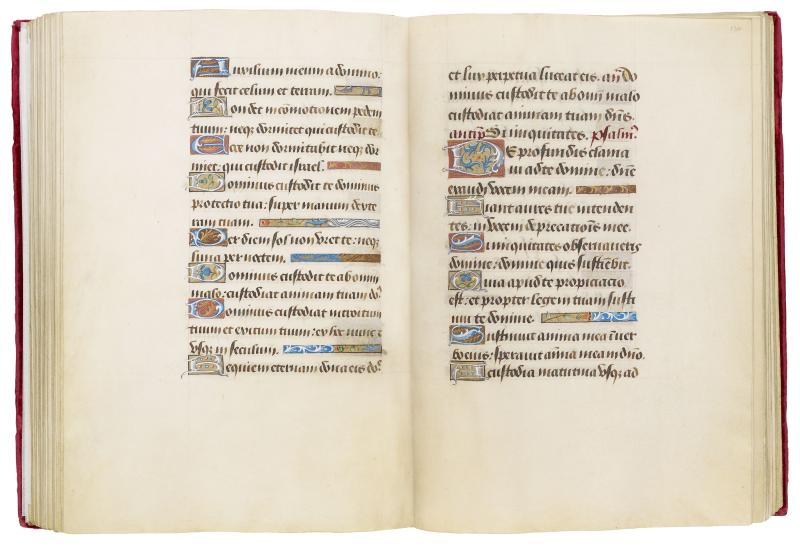 Auxilium meum a domino:
qui fecit celum et terram.
Non det in cōmotionem pedem
tuum: neq; dormitet qui custodit te
Ecce non dormitabit neq; dor
miet: qui custodit israel.
Dominus custodit te dominus
protectio tua: super manum dexte
ram tuam.
Per diem sol non vret te: neq;
luna per noctem.
Dominus custodit te ab omni
malo: custodiat animam tuam do.
Dominus custodiat introitum
tuum et exitum tuum: ex hoc nunc et
vsq; in seculum.
Requiem eternam dona eis do.
et lux perpetua luceat eis. añ do
minus custodit te ab omni malo
custodiat animam tuam dñs.
antip̄ Si iniquitates. psalm̄.
De profundis clama
ui ad te domine: dñe
exaudi vocem meam.
Fiant aures tue intenden
tes: in vocem deprecationis mee.
Si iniquitates obseruaueris
domine: domine quis sustinebit.
Quia apud te propiciacio
est: et propter legem tuam susti
nui te domine.
Sustinuit anima mea in uerbo
eius: sperauit aīma mea in dño.
A custodia matutina vsq; ad